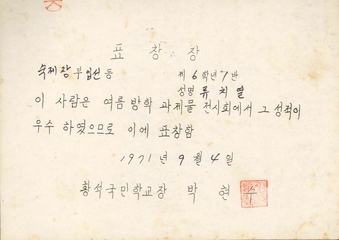 표창장
숙제장부 입선 등
제6학년7반
성명 류치열
이 사람은 여름방학 과제물 전시회에서 그 성적이
우수 하였으므로 이에 표창함
1971년 9월 4일
황석국민학교장 박현수